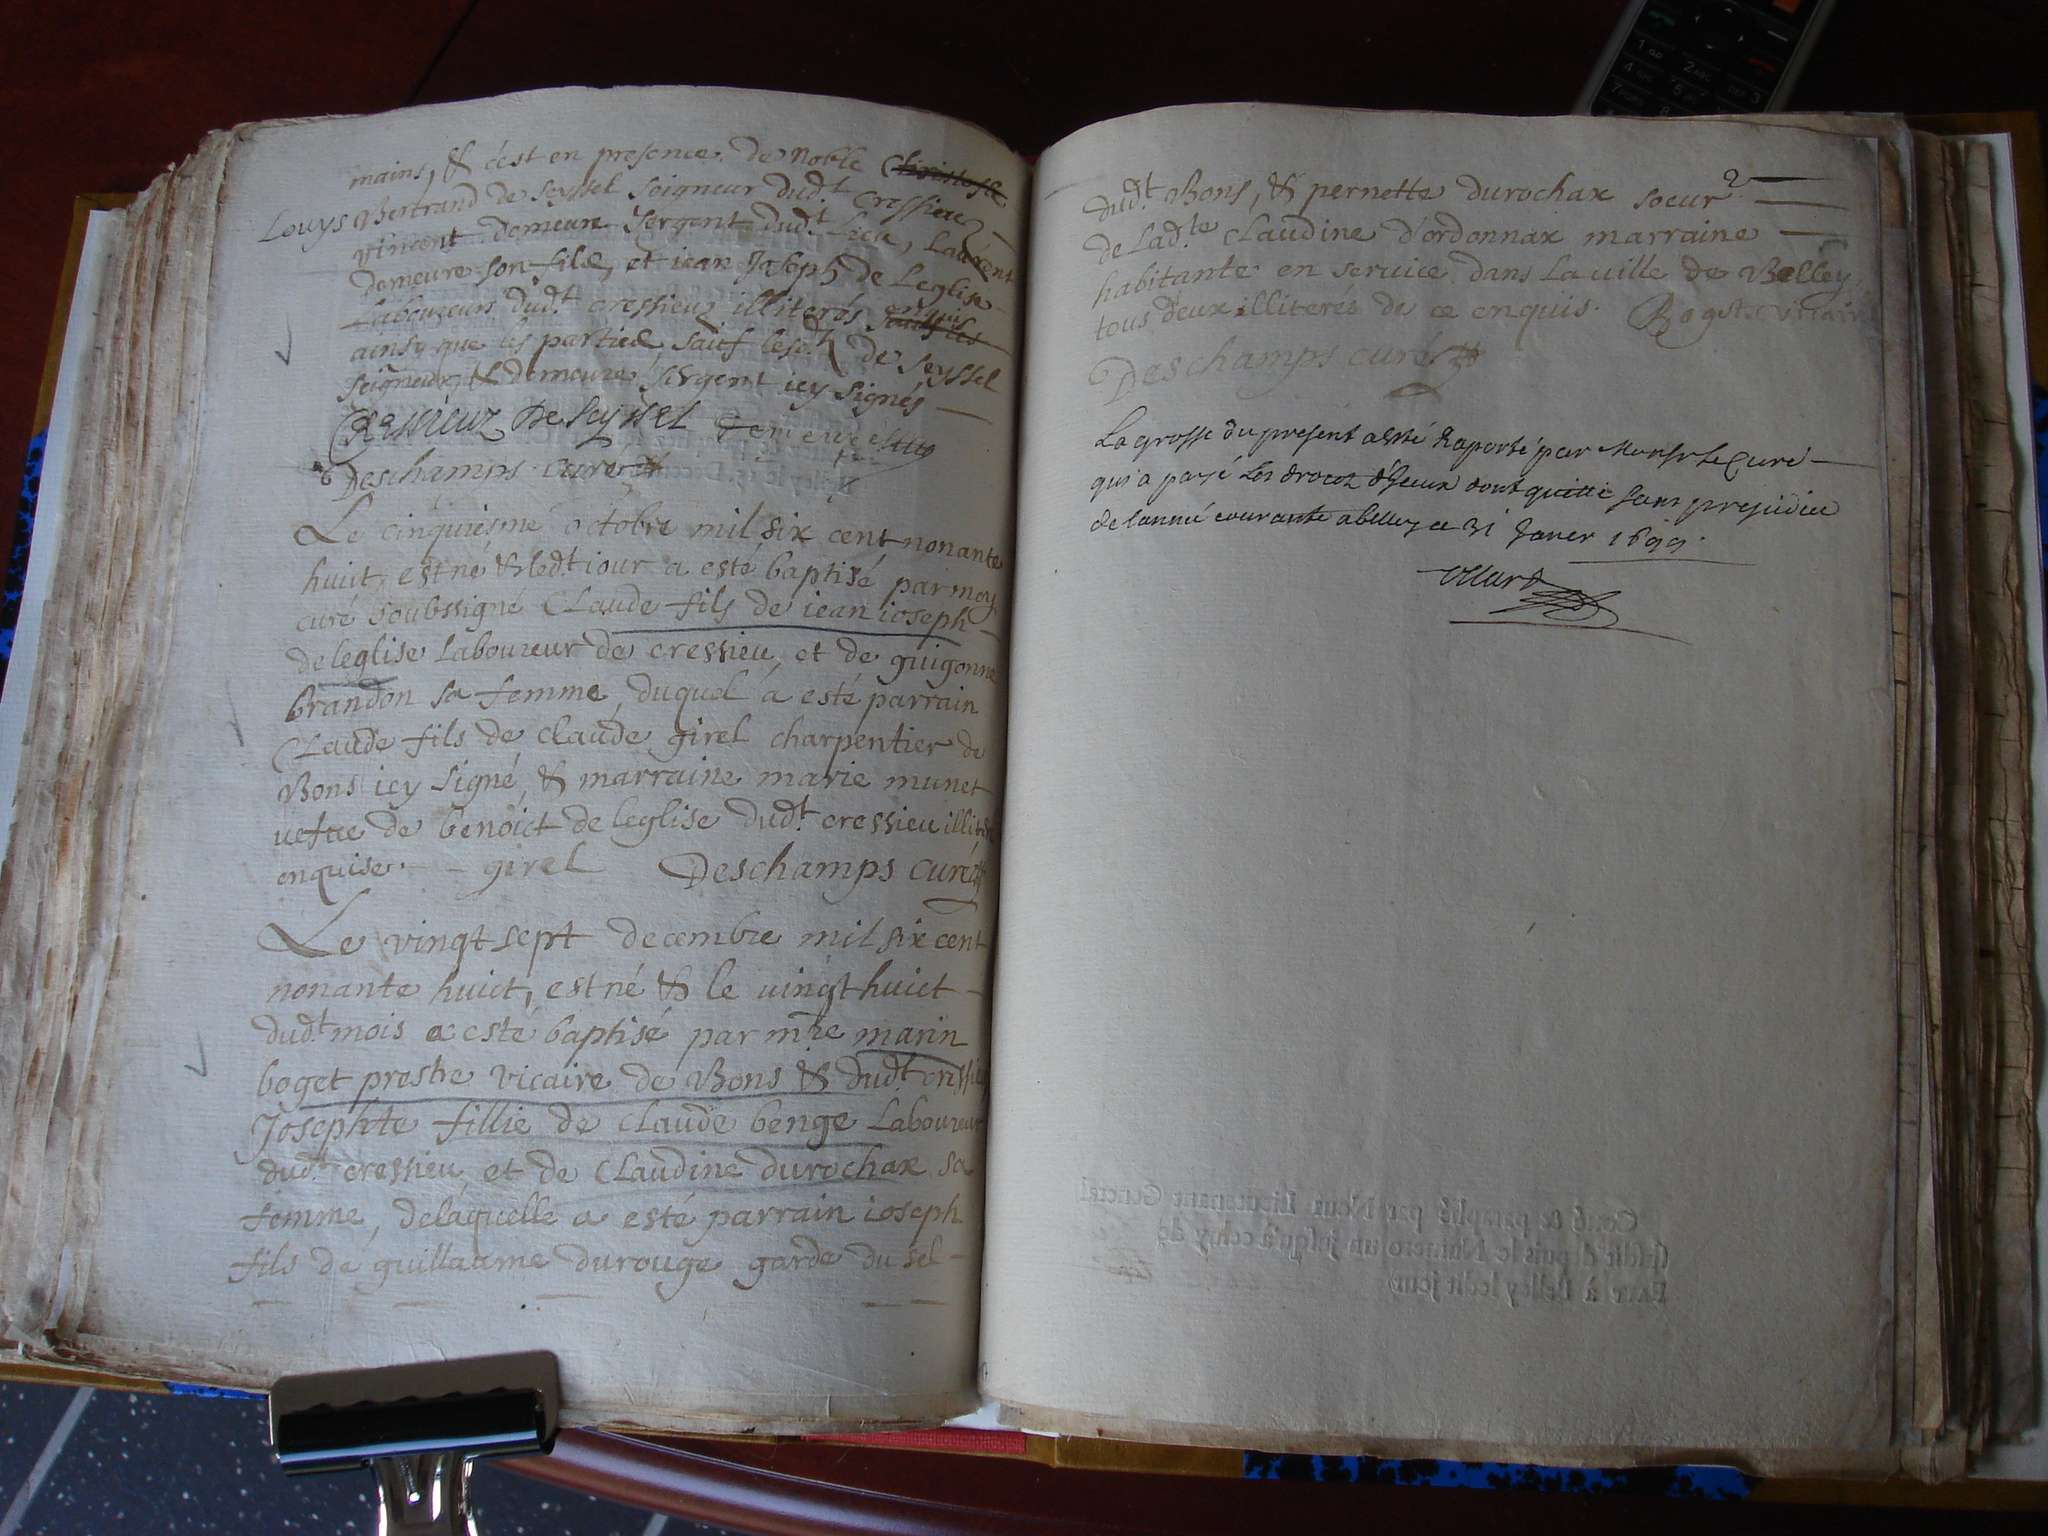 mains, & c'est en presence de Noble Christofle
Louys Bertrand de Seyssel Seigneur dudt. Cressieu
vincent demeure sergent dudt. Lieu, Laurent
demeure son fils, et iean Joseph de Leglise
Laboureurs dudt. cressieux illiterés enquis
ainsy que les parties, sauf lesd. de Seyssel
seigneur, & demeure sergent icy signés
Cressieuz De Seyssel Demeure
Deschamps curé
Le cinquiesme octobre mil six cent nonante
huit, est né & ledt. iour a esté baptisé par moy
curé soubssigné Claude fils de iean ioseph
deleglise Laboureur de cressieu, et de guigonne
brandon sa femme, duquel a esté parrain
Claude fils de claude girel charpentier de
Bons icy signé, & marraine marie munet
vefue de benoict deleglise dudt. cressieu
enquise. girel Deschamps curé
Le vingt sept decembre mil six cent
nonante huict, est né & le vingt huict
dudt. mois a esté baptisé par mre marin
boget prestre vicaire de Bons & dudt.
Josephte fillie de claude benge Laboureur
dudt. cressieu, et de Claudine durochax sa
femme, delaquelle a esté parrain ioseph
fils de guillaume durouge garde du sel
2
dudt. Bons, & pernette durochax soeur
de Ladte Claudine d'ordonnax marraine
habitante en service dans La ville de Belley,
tous deux illiterés de ce enquis. Boget vicaire
Deschamps curé
La grosse du present a esté raporté par Monsr le Curé
qui a payé Les droictz d'Iceux dont quitte sans prejudice
de lanné courante a belley ce 31 Janer 1699.
Cotté & paraphé par Nous Lieutenant General
susdit depuis le Numero un jusqu'à celuy de
Fait à Belley ledit jour